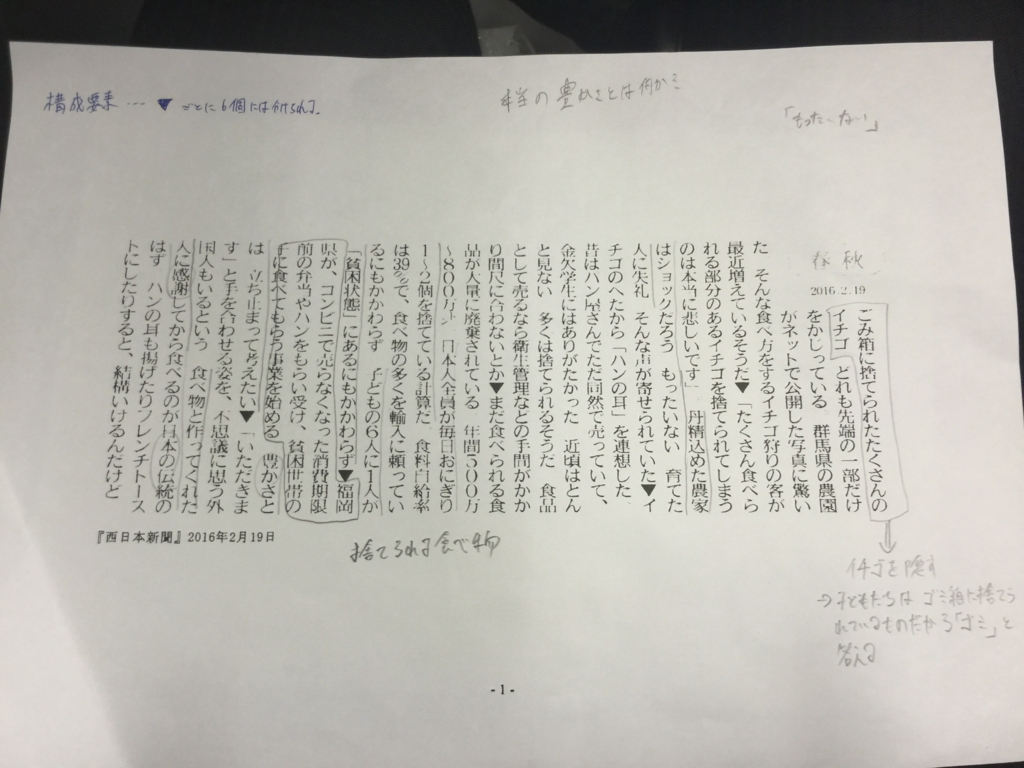 構成要素…▼ごとに6個には分けられる。
本当の豊かさとは何か?
「もったいない」
春秋
2016.2.19
ごみ箱に捨てられたたくさんの
イチゴ どれも先端の一部だけ
をかじっている 群馬県の農園
がネットで公開した写真に驚い
た そんな食べ方をするイチゴ狩りの客が
最近増えているそうだ▼「たくさん食べら
れる部分のあるイチゴを捨てられてしまう
のは本当に悲しいです」 丹精込めた農家
はショックだろう もったいない 育てた
人に失礼 そんな声が寄せられていた▼イ
チゴのへたから「パンの耳」を連想した
昔はパン屋さんでただ同然で売っていて、
金欠学生にはありがたかった 近頃はとん
と見ない 多くは捨てられるそうだ 食品
として売るなら衛生管理などの手間がかか
り間尺に合わないとか▼まだ食べられる食
品が大量に廃棄されている 年間500万
~800万トン 日本人全員が毎日おにぎり
1~2個を捨てている計算だ 食料自給率
は39%で、食べ物の多くを輸入に頼ってい
るにもかかわらず 子どもの6人に1人が
「貧困状態」にあるにもかかわらず▼福岡
県が、コンビニで売らなくなった消費期限
前の弁当やパンをもらい受け、貧困世帯の
子に食べてもらう事業を始める 豊かさと
は 立ち止まって考えたい▼「いただきま
す」と手を合わせる姿を、不思議に思う外
国人もいるという 食べ物と作ってくれた
人に感謝してから食べるのが日本の伝統の
はず パンの耳も揚げたりフレンチトース
トにしたりすると、結構いけるんだけど
『西日本新聞』2016年2月19日
捨てられる食べ物
イチゴを隠す
→子どもたちは ゴミ箱に捨てら
れているものだから「ゴミ」と
答える
- 1 -